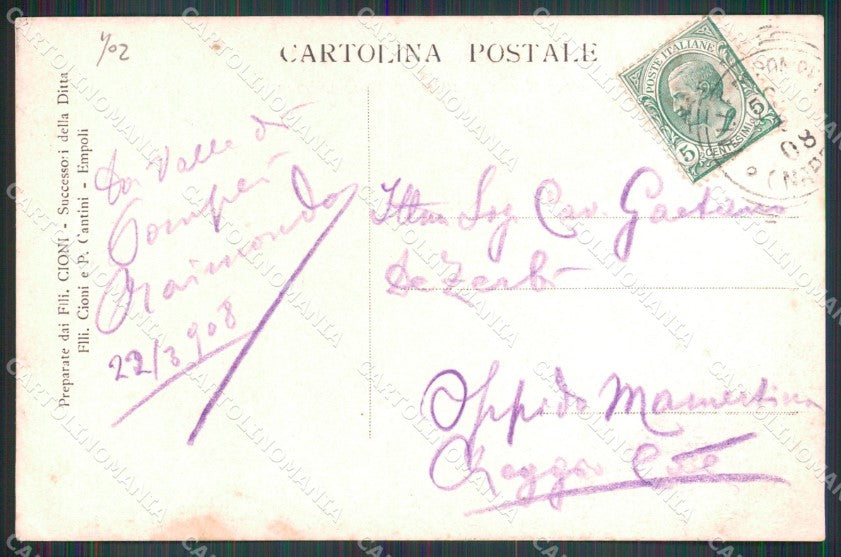 1/02
CARTOLINA POSTALE
POSTE ITALIANE
5 CENTESIMI 5
Preparate dai Flli. CIONI - Successori della Ditta
Flli. Cioni e P. Cantini - Empoli
Da Valle di
Pompei
Raimondo
22/3 908
Illm Sig Cav. Gaetano
De Zerbi
Oppido Mamertina
Reggio Cale
08
(NAP
CARTOLINOMANIA